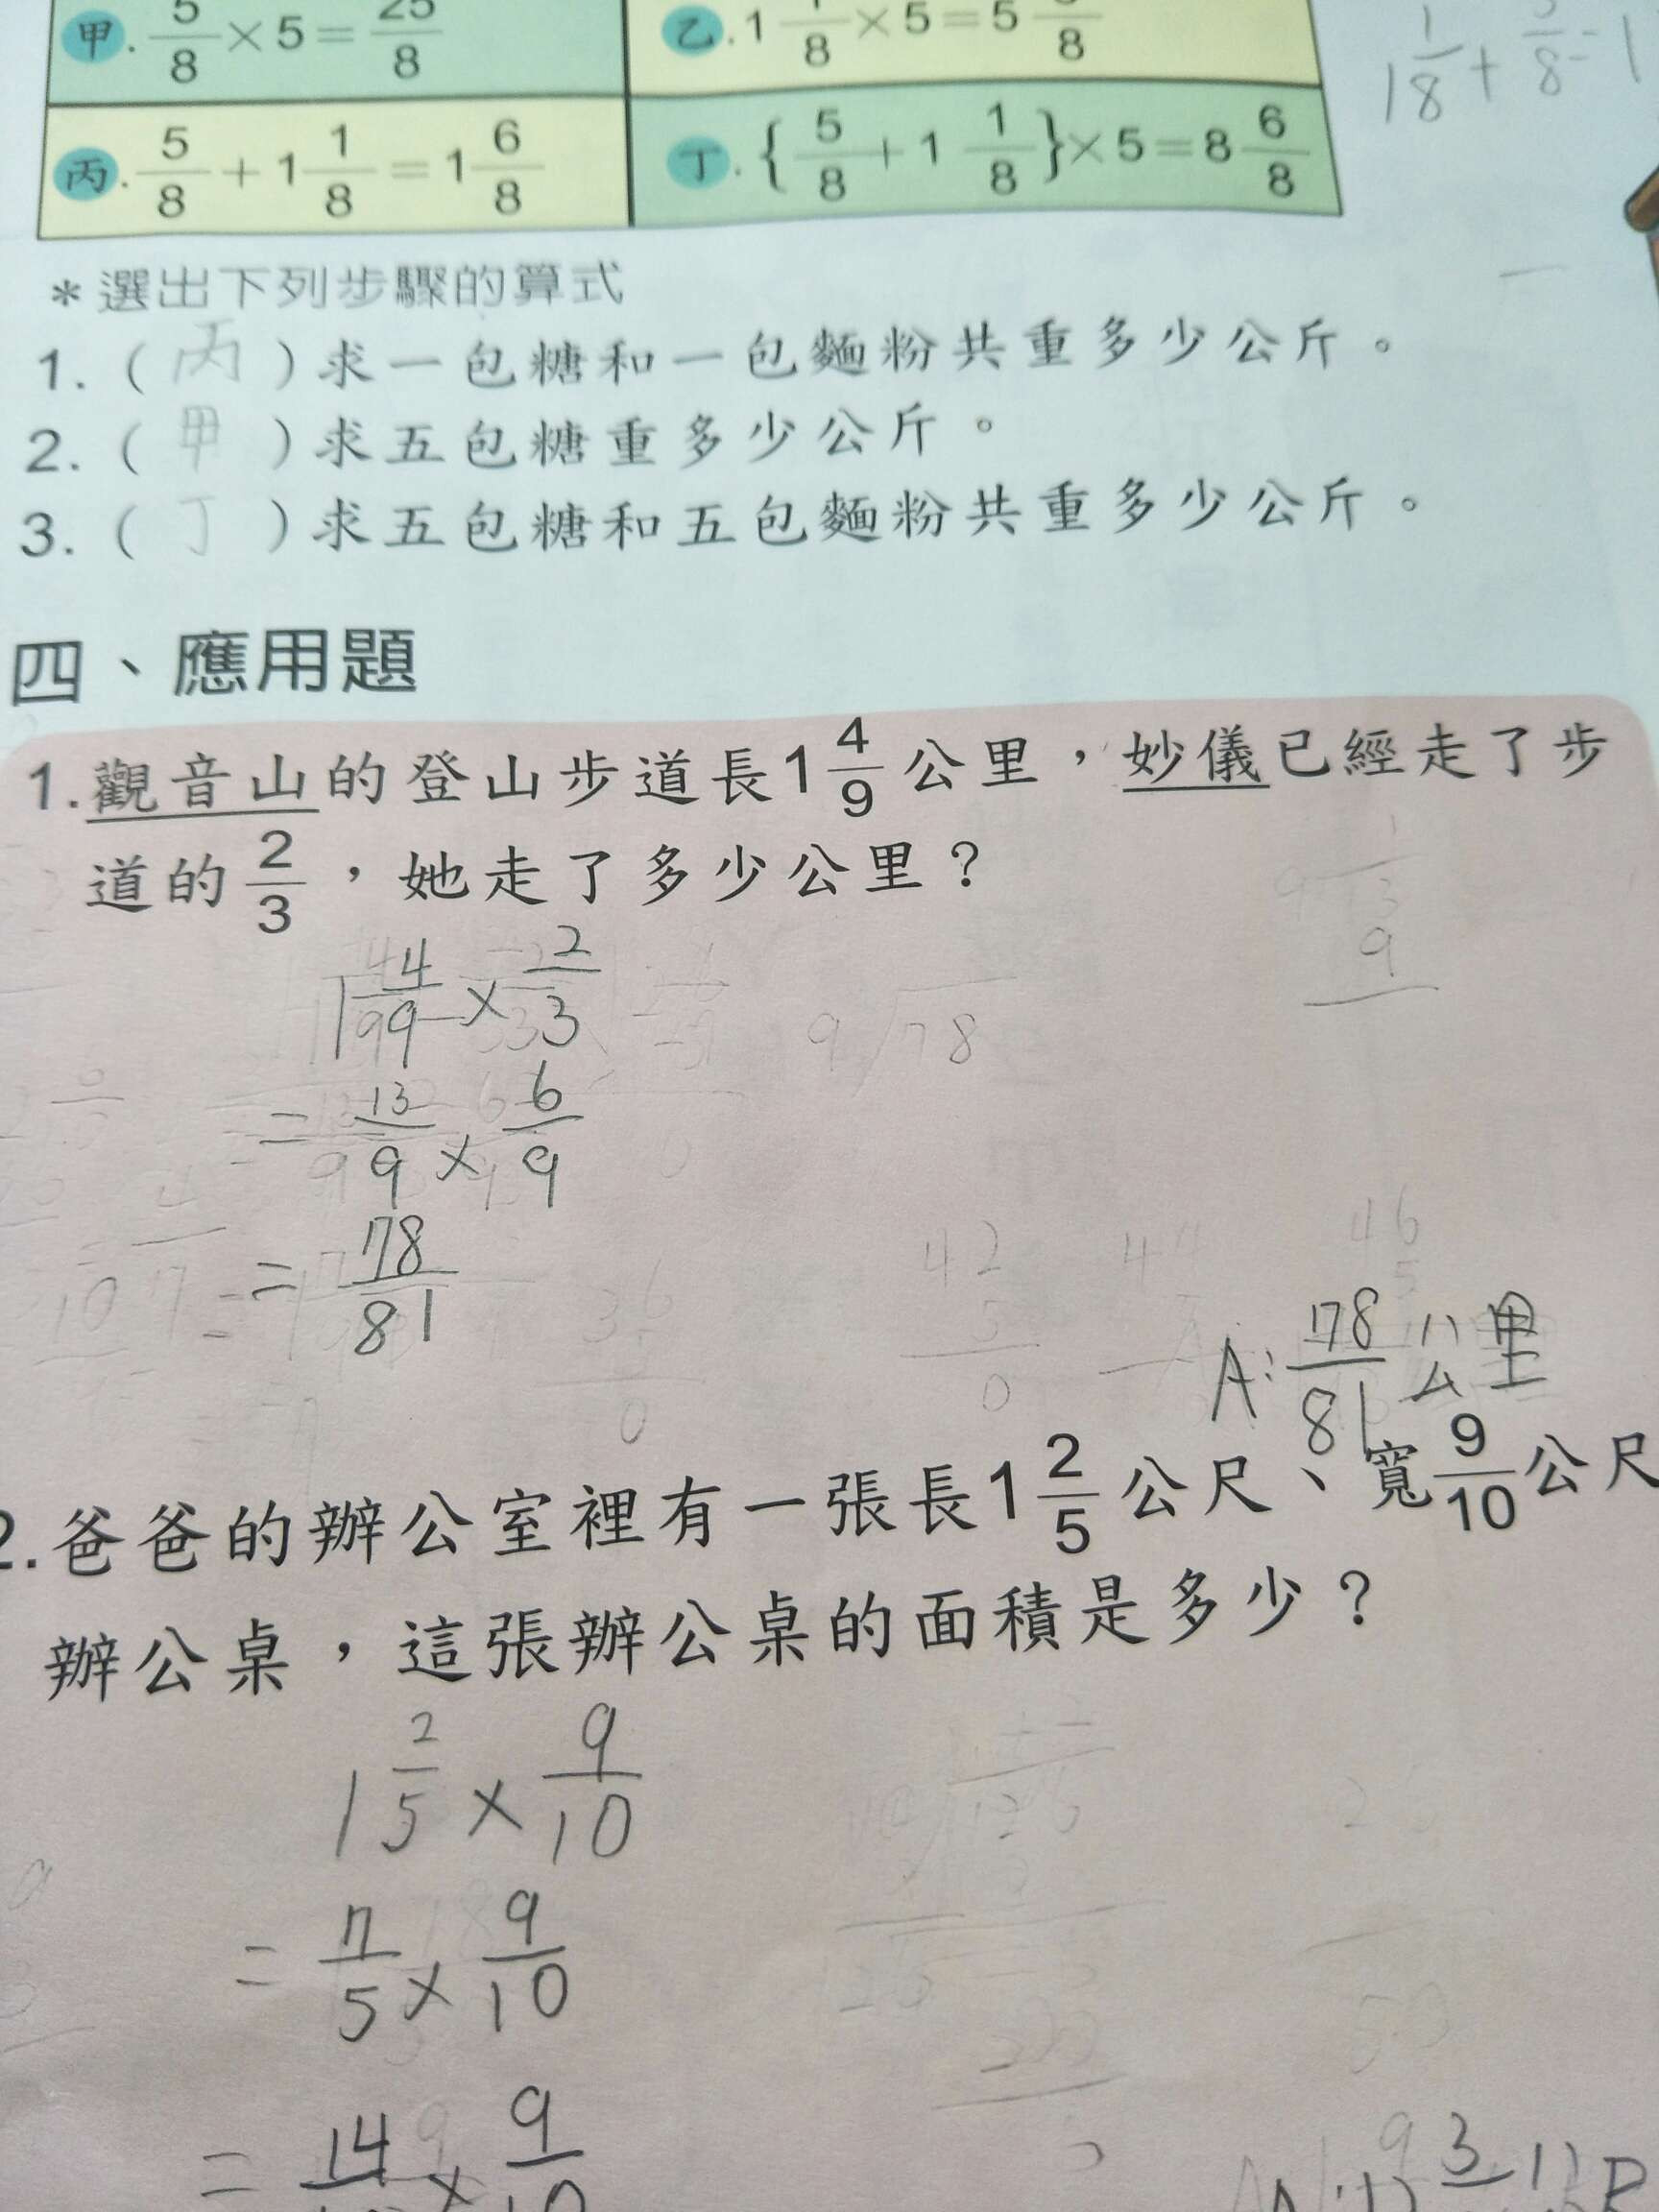 甲. 5/8 × 5 = 25/8
乙. 1 1/8 × 5 = 5 5/8
1 1/8 + 5/8 = 1
丙. 5/8 + 1 1/8 = 1 6/8
丁. { 5/8 + 1 1/8 } × 5 = 8 6/8
*選出下列步驟的算式
1. ( 丙 ) 求一包糖和一包麵粉共重多少公斤。
2. ( 甲 ) 求五包糖重多少公斤。
3. ( 丁 ) 求五包糖和五包麵粉共重多少公斤。
四、應用題
1. 觀音山的登山步道長1 4/9 公里,妙儀已經走了步
道的 2/3 ,她走了多少公里?
1 4/9 × 2/3
= 13/9 × 6/9
= 78/81
A: 78/81 公里
2. 爸爸的辦公室裡有一張長1 2/5 公尺、寬 9/10 公尺
辦公桌,這張辦公桌的面積是多少?
1 2/5 × 9/10
= 7/5 × 9/10
= 14/10 × 9/10